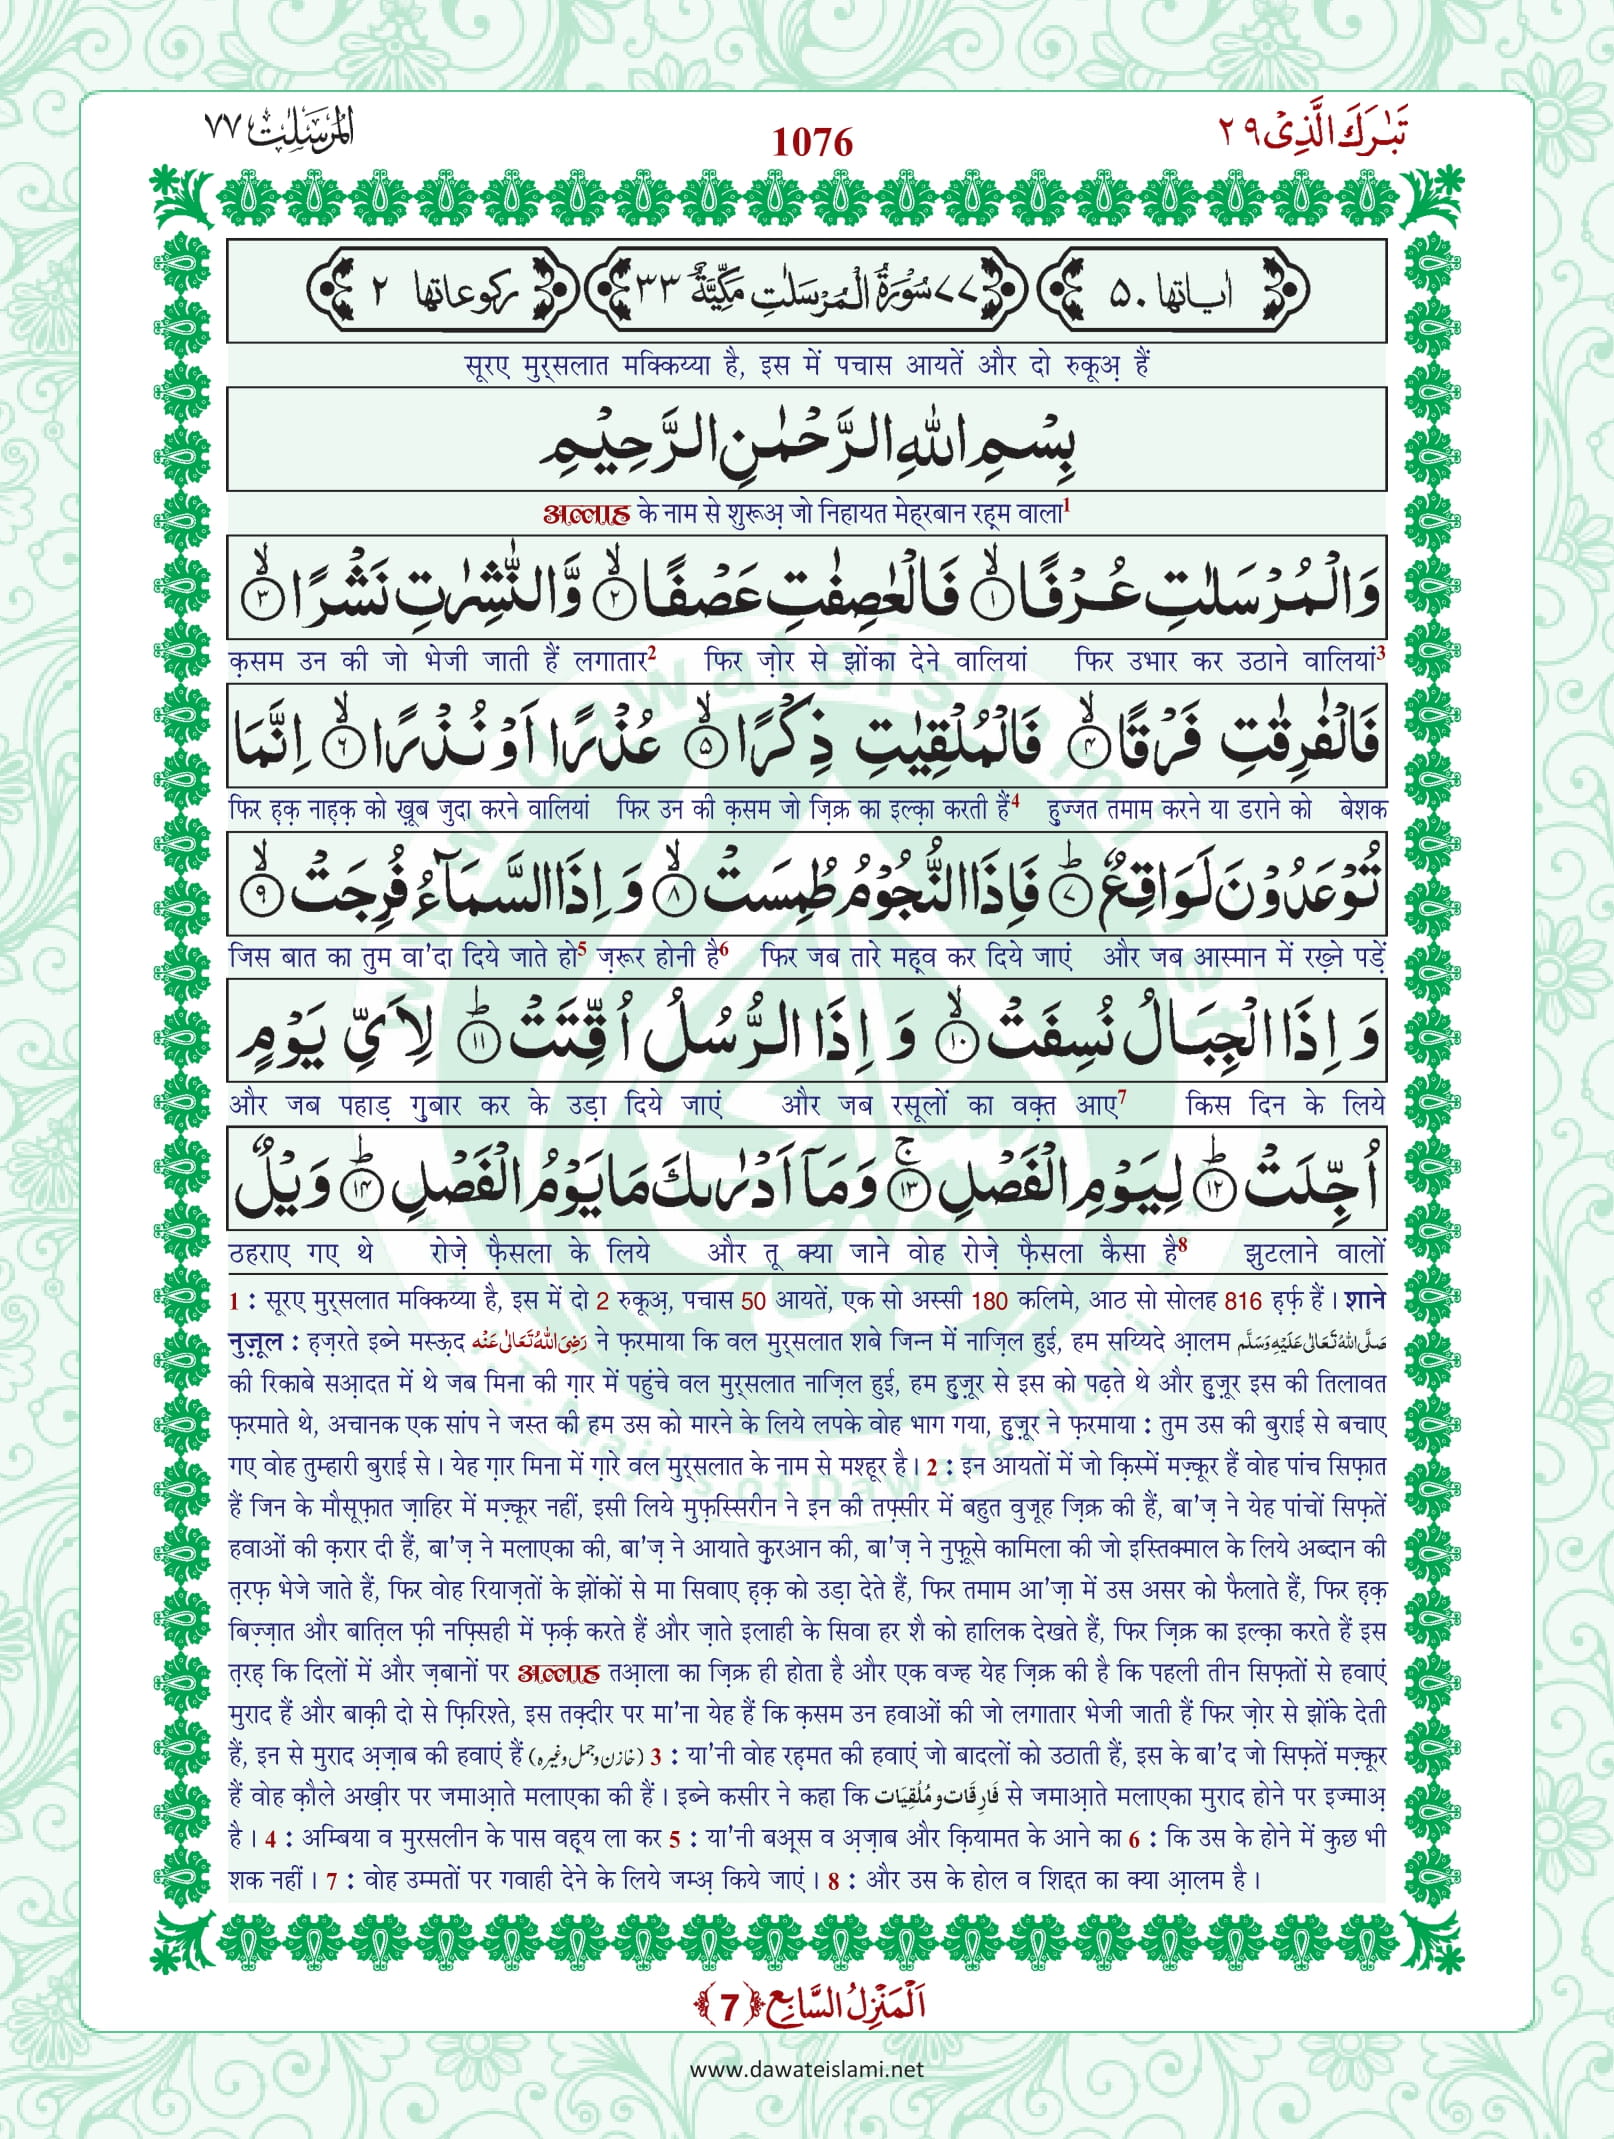 تَبٰرَكَ الَّذِیْ ٢٩
1076
اَلْمُرْسَلٰت ٧٧
اٰیاتها ٥٠
٧٧ سُوْرَةُ الْمُرْسَلٰتِ مَكِّیَّةٌ ٣٣
ركوعاتها ٢
सूरए मुर्सलात मक्किय्या है, इस में पचास आयतें और दो रुकूअ़ हैं
بِسْمِ اللّٰهِ الرَّحْمٰنِ الرَّحِیْمِ
अल्लाह के नाम से शुरूअ़ जो निहायत मेह्रबान रह़्म वाला1
وَ الْمُرْسَلٰتِ عُرْفًاۙ(۱) فَالْعٰصِفٰتِ عَصْفًاۙ(۲) وَّ النّٰشِرٰتِ نَشْرًاۙ(۳)
क़सम उन की जो भेजी जाती हैं लगातार2 फिर ज़ोर से झोंका देने वालियां फिर उभार कर उठाने वालियां3
فَالْفٰرِقٰتِ فَرْقًاۙ(۴) فَالْمُلْقِیٰتِ ذِكْرًاۙ(۵) عُذْرًا اَوْ نُذْرًاۙ(۶) اِنَّمَا
फिर ह़क़ नाह़क़ को ख़ूब जुदा करने वालियां फिर उन की क़सम जो ज़िक्र का इल्क़ा करती हैं4 ह़ुज्जत तमाम करने या डराने को बेशक
تُوْعَدُوْنَ لَوَاقِعٌؕ(۷) فَاِذَا النُّجُوْمُ طُمِسَتْۙ(۸) وَ اِذَا السَّمَآءُ فُرِجَتْۙ(۹)
जिस बात का तुम वा'दा दिये जाते हो5 ज़रूर होनी है6 फिर जब तारे मह़्व कर दिये जाएं और जब आस्मान में रख़्ने पड़ें
وَ اِذَا الْجِبَالُ نُسِفَتْۙ(۱۰) وَ اِذَا الرُّسُلُ اُقِّتَتْؕ(۱۱) لِاَیِّ یَوْمٍ
और जब पहाड़ ग़ुबार कर के उड़ा दिये जाएं और जब रसूलों का वक़्त आए7 किस दिन के लिये
اُجِّلَتْؕ(۱۲) لِیَوْمِ الْفَصْلِۚ(۱۳) وَ مَاۤ اَدْرٰىكَ مَا یَوْمُ الْفَصْلِؕ(۱۴) وَیْلٌ
ठहराए गए थे रोज़े फ़ैसला के लिये और तू क्या जाने वोह रोज़े फ़ैसला कैसा है8 झुटलाने वालों
1 : सूरए मुर्सलात मक्किय्या है, इस में दो 2 रुकूअ़, पचास 50 आयतें, एक सो अस्सी 180 कलिमे, आठ सो सोलह 816 ह़र्फ़ हैं। शाने
नुज़ूल : ह़ज़रते इब्ने मस्ऊ़द رَضِیَ اللّٰهُ تَعَالٰی عَنْه ने फ़रमाया कि वल मुर्सलात शबे जिन्न में नाज़िल हुई, हम सय्यिदे आ़लम صَلَّی اللّٰهُ تَعَالٰی عَلَیْهِ وَسَلَّم
की रिकाबे सआ़दत में थे जब मिना की ग़ार में पहुंचे वल मुर्सलात नाज़िल हुई, हम हुज़ूर से इस को पढ़ते थे और हुज़ूर इस की तिलावत
फ़रमाते थे, अचानक एक सांप ने जस्त की हम उस को मारने के लिये लपके वोह भाग गया, हुज़ूर ने फ़रमाया : तुम उस की बुराई से बचाए
गए वोह तुम्हारी बुराई से। येह ग़ार मिना में ग़ारे वल मुर्सलात के नाम से मश्हूर है। 2 : इन आयतों में जो क़िस्में मज़्कूर हैं वोह पांच सिफ़ात
हैं जिन के मौसूफ़ात ज़ाहिर में मज़्कूर नहीं, इसी लिये मुफ़स्सिरीन ने इन की तफ़्सीर में बहुत वुजूह ज़िक्र की हैं, बा'ज़ ने येह पांचों सिफ़तें
हवाओं की क़रार दी हैं, बा'ज़ ने मलाएका की, बा'ज़ ने आयाते क़ुरआन की, बा'ज़ ने नुफ़ूसे कामिला की जो इस्तिक्माल के लिये अब्दान की
त़रफ़ भेजे जाते हैं, फिर वोह रियाज़तों के झोंकों से मा सिवाए ह़क़ को उड़ा देते हैं, फिर तमाम आ'ज़ा में उस असर को फैलाते हैं, फिर ह़क़
बिज़्ज़ात और बात़िल फ़ी नफ़्सिही में फ़र्क़ करते हैं और ज़ाते इलाही के सिवा हर शै को हालिक देखते हैं, फिर ज़िक्र का इल्क़ा करते हैं इस
त़रह़ कि दिलों में और ज़बानों पर अल्लाह तआ़ला का ज़िक्र ही होता है और एक वज्ह येह ज़िक्र की है कि पहली तीन सिफ़तों से हवाएं
मुराद हैं और बाक़ी दो से फ़िरिश्ते, इस तक़्दीर पर मा'ना येह हैं कि क़सम उन हवाओं की जो लगातार भेजी जाती हैं फिर ज़ोर से झोंके देती
हैं, इन से मुराद अ़ज़ाब की हवाएं हैं (خازن و جمل وغیره) 3 : या'नी वोह रह़मत की हवाएं जो बादलों को उठाती हैं, इस के बा'द जो सिफ़तें मज़्कूर
हैं वोह क़ौले अख़ीर पर जमाआ़ते मलाएका की हैं। इब्ने कसीर ने कहा कि فَارِقَات و مُلْقِیَات से जमाआ़ते मलाएका मुराद होने पर इज्माअ़
है। 4 : अम्बिया व मुरसलीन के पास वह़्य ला कर 5 : या'नी बअ़्स व अ़ज़ाब और क़ियामत के आने का 6 : कि उस के होने में कुछ भी
शक नहीं। 7 : वोह उम्मतों पर गवाही देने के लिये जम्अ़ किये जाएं। 8 : और उस के होल व शिद्दत का क्या आ़लम है।
اَلْمَنْزِلُ السَّابِع ﴿7﴾
www.dawateislami.net